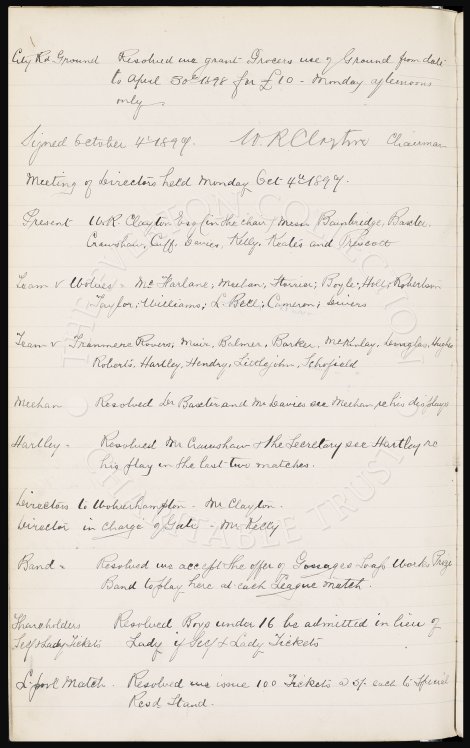 City Rd. Ground Resolved we grant Grocers use of Ground from date
to April 30th 1898 for £10 - Monday afternoons
only
Signed October 4th 1897. W. R. Clayton Chairman
Meeting of Directors held Monday Oct 4th 1897.
Present W.R. Clayton Esq (in the chair) Messrs Bainbridge, Baxter
Crawshaw, Cuff, Davies, Kelly, Keates and Prescott
Team v Wolves - McFarlane; Meehan, Storrier; Boyle, Holt; Robertson
Taylor; Williams; L. Bell; Cameron; Divers
Team v Tranmere Rovers; Muir, Balmer, Barker, McKinlay, Hughes
Roberts, Hartley, Hendry, Littlejohn, Schofield
Meehan Resolved Dr Baxter and Mr Davies see Meehan re his displays
Hartley - Resolved Mr Crawshaw & the Secretary see Hartley re
his play in the last two matches.
Directors to Wolverhampton - Mr Clayton.
Director in charge of Gate - Mr Kelly
Band - Resolved we accept the offer of Gossages Soap Works Prize
Band to play here at each League match
Shareholders Resolved Boys under 16 be admitted in lieu of
Self & Lady Tickets Lady if Self & Lady Tickets
L'pool Match. Resolved we issue 100 Tickets @ 5/- each to Special
Resd Stand.
THE EVERTON COLLECTION
CHARITABLE TRUST